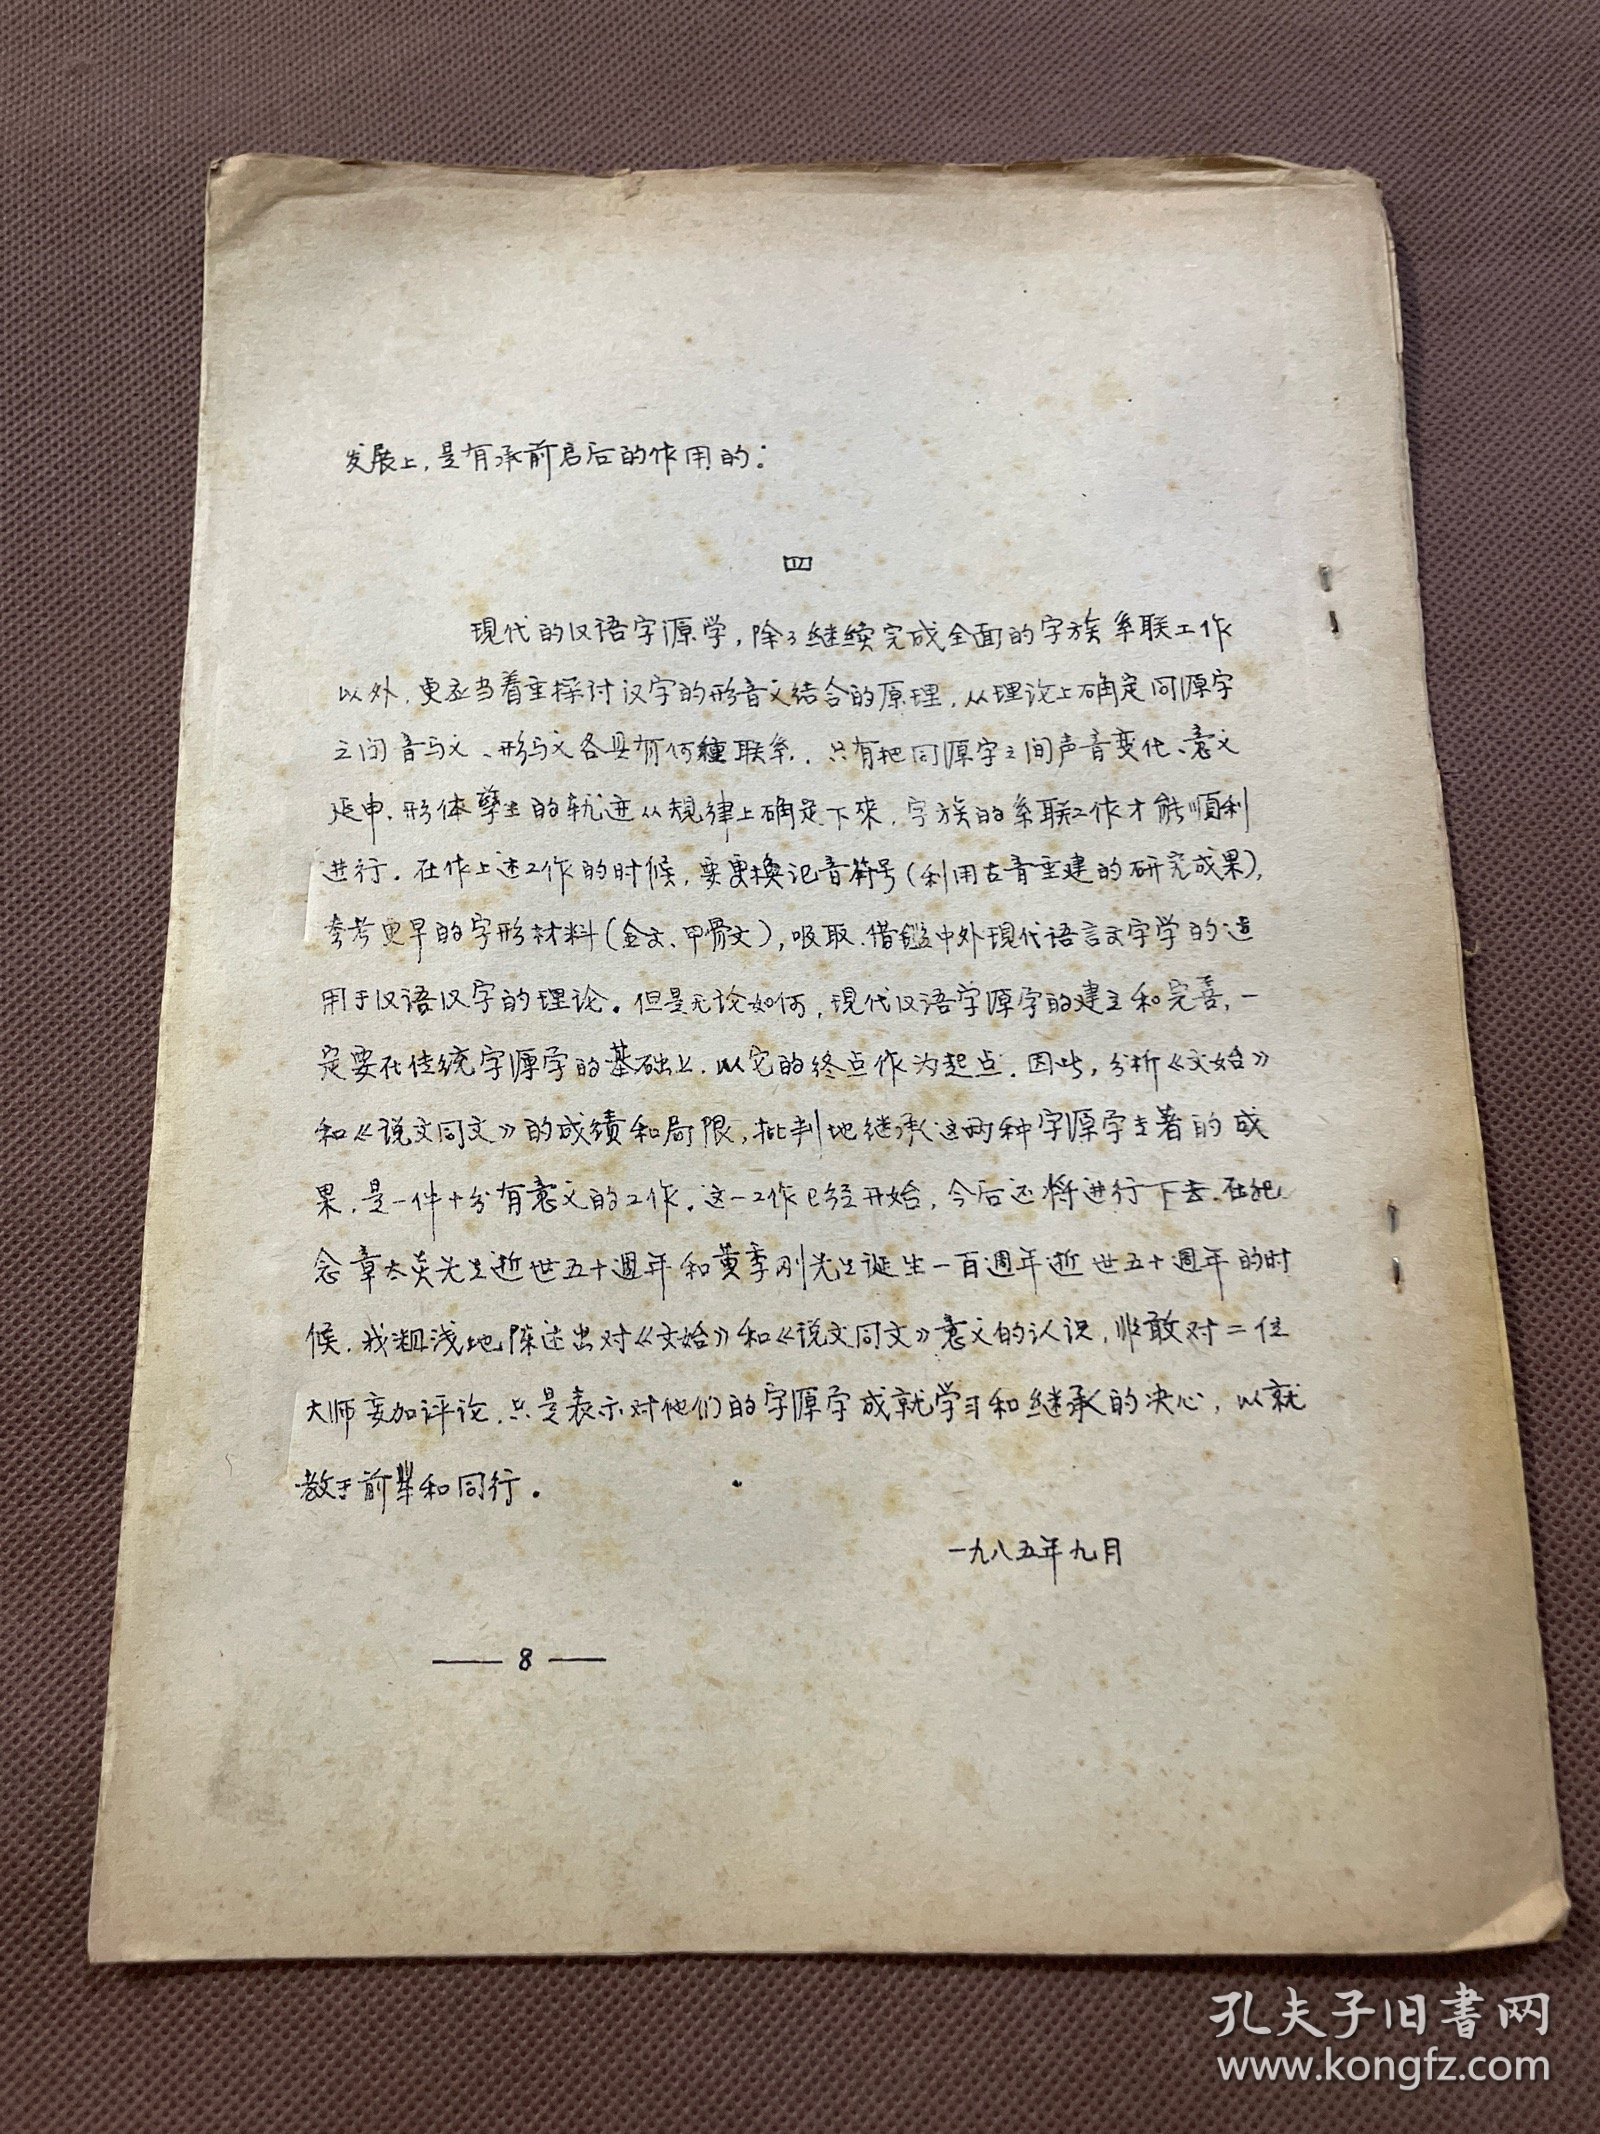 发展上,是有承前启后的作用的:
四
現代的汉语字源学,除了继续完成全面的字族系联工作
以外,更应当着重探讨汉字的形音义结合的原理,从理论上确定同源字
之间音与义、形与义各具有何種联系.只有把同源字之间声音变化、意义
延申、形体孳生的轨迹从规律上确定下來,字族的系联工作才能順利
进行.在作上述工作的时候,要更换记音符号(利用古音重建的研究成果),
参考更早的字形材料(金文、甲骨文),吸取、借鑑中外現代语言文字学的适
用于汉语汉字的理论。但是无论如何,現代汉语字源学的建立和完善,一
定要在传统字源学的基础上.以它的终点作为起点.因此,分析《文始》
和《说文同文》的成绩和局限,批判地继承这两种字源学专著的成
果,是一件十分有意义的工作.这一工作已经开始,今后还将进行下去.在纪
念章太炎先生逝世五十週年和黄季刚先生诞生一百週年逝世五十週年的时
候,我粗浅地陈述出对《文始》和《说文同文》意义的认识,非敢对二位
大师妄加评论,只是表示对他们的字源学成就学习和继承的决心,以就
教于前辈和同行.
一九八五年九月
— 8 —
孔夫子旧書网
www.kongfz.com